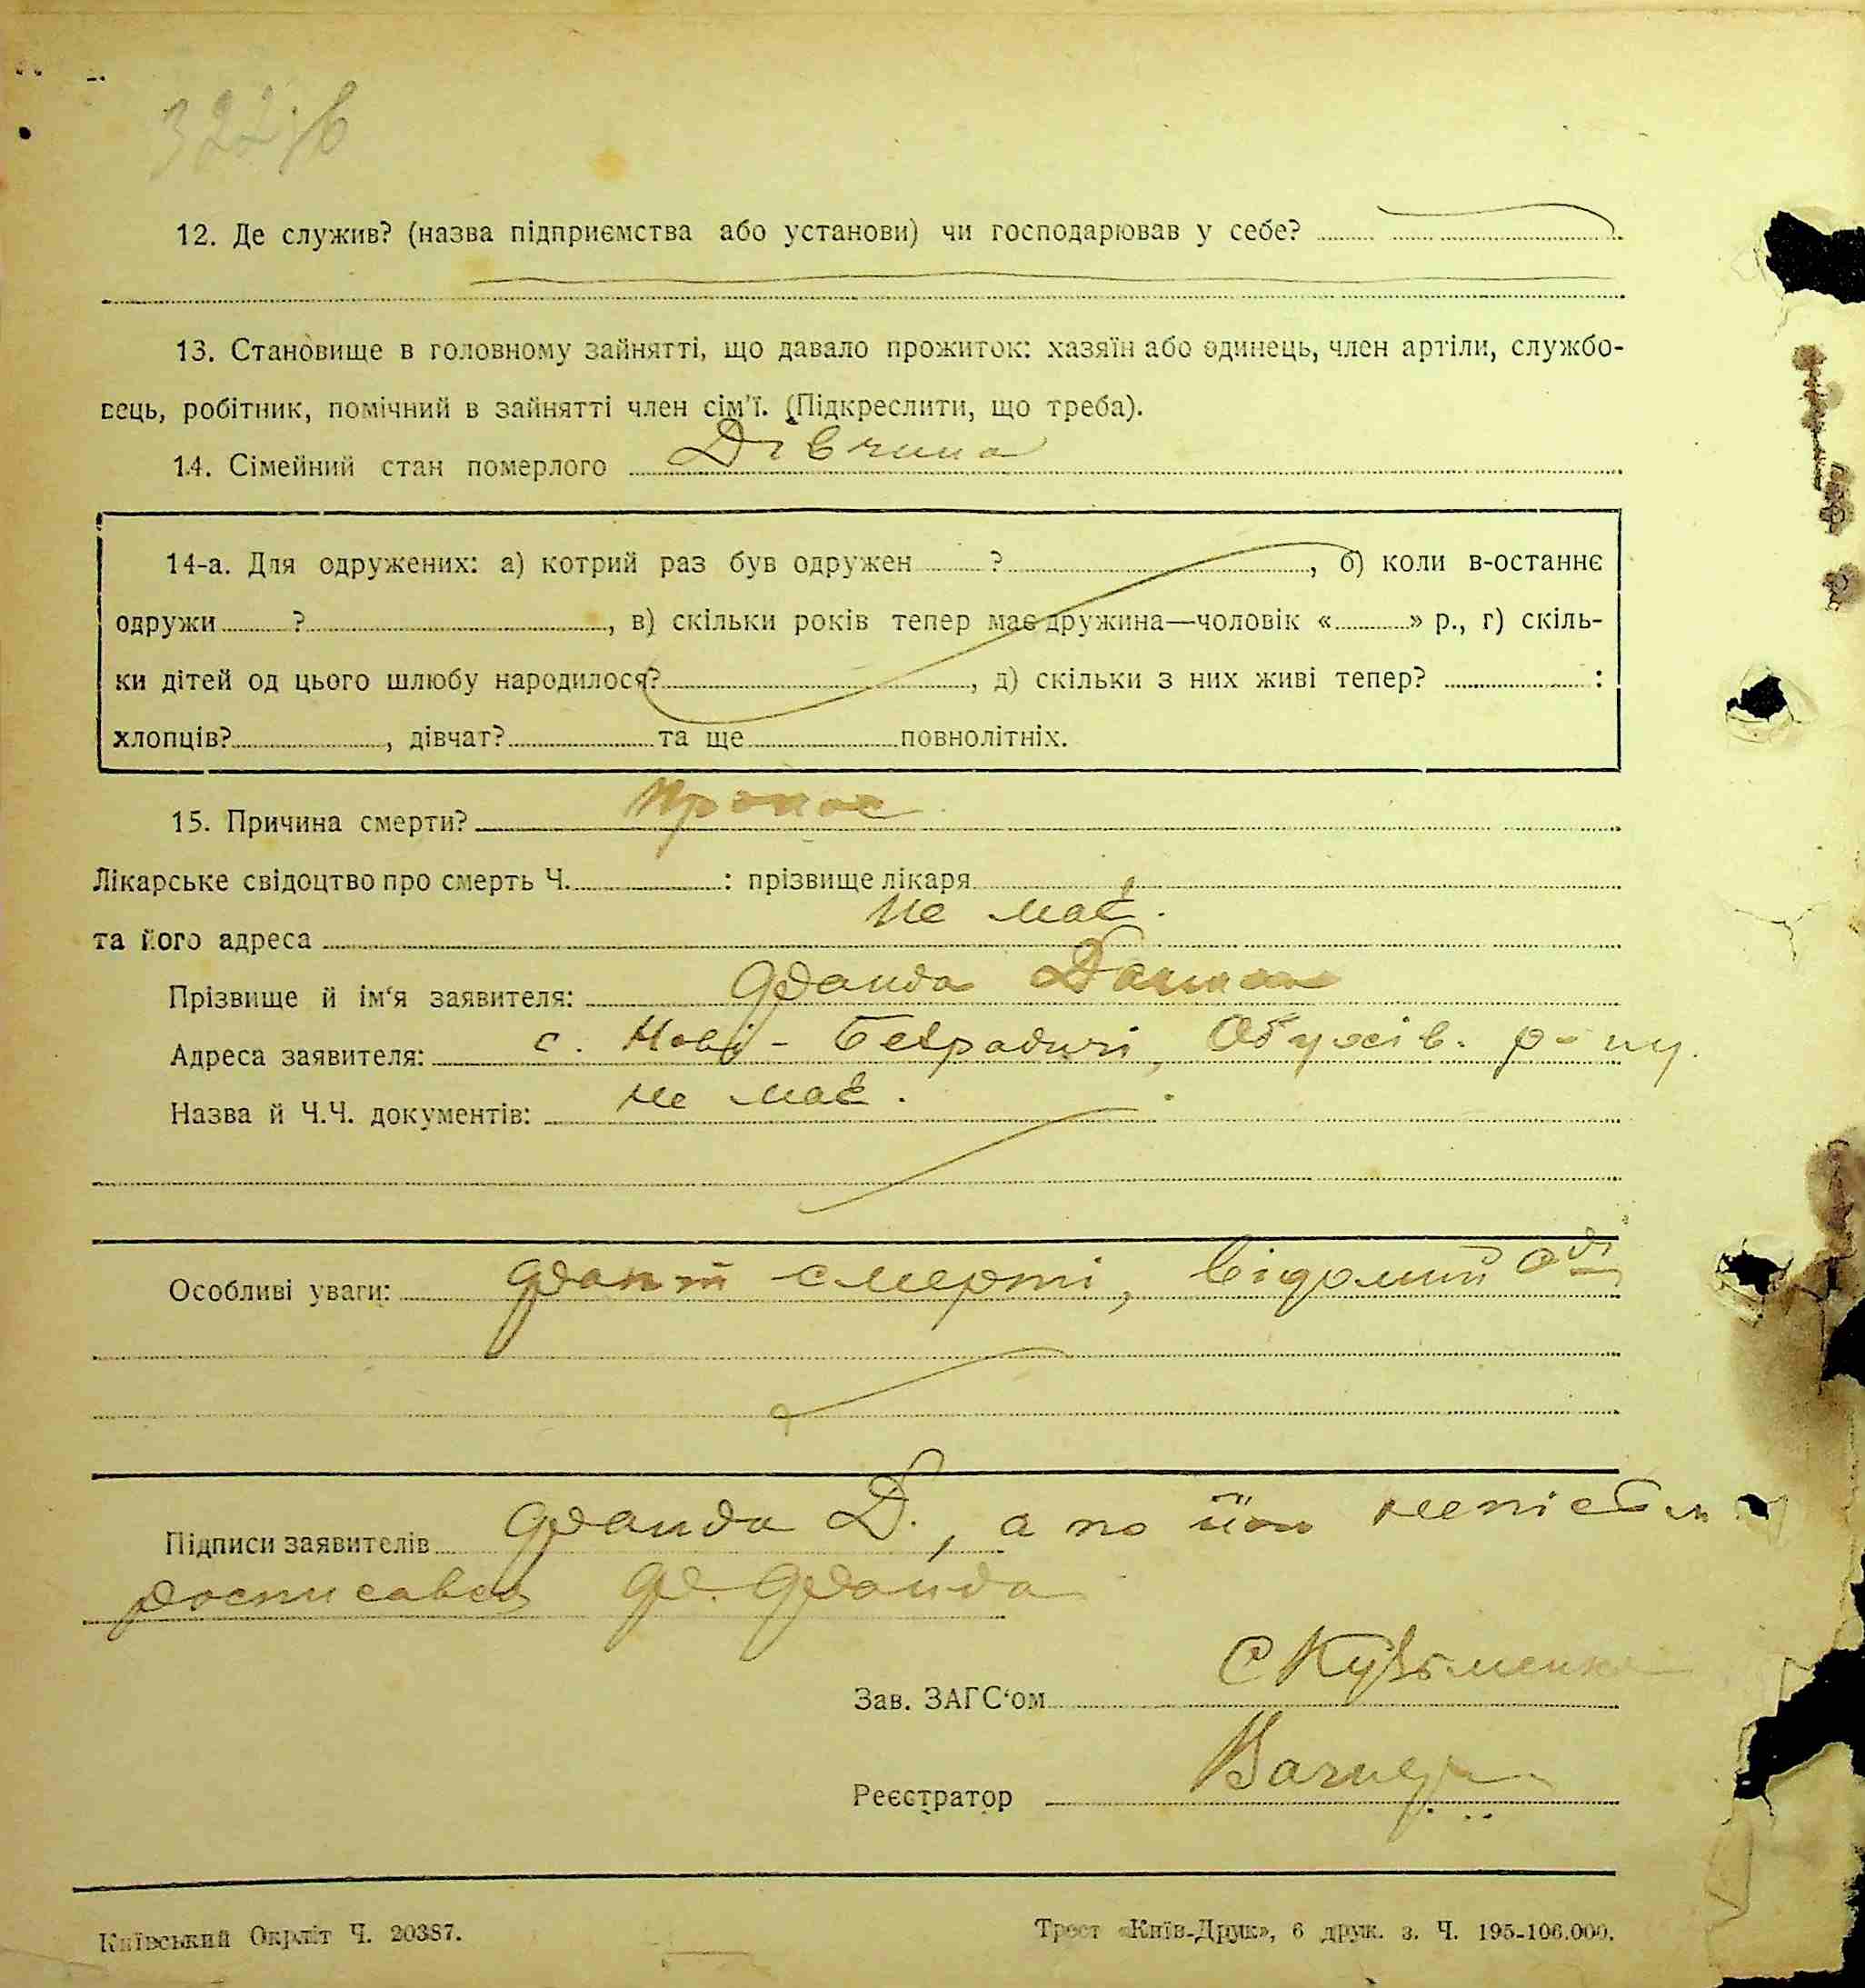 322 зв
12. Де служив? (назва підприємства або установи) чи господарював у себе?
13. Становище в головному зайнятті, що давало прожиток: хазяїн або одинець, член артіли, службо-
вець, робітник, помічний в зайнятті член сім'ї. (Підкреслити, що треба).
14. Сімейний стан померлого Дівчина
14-а. Для одружених: а) котрий раз був одружен ? , б) коли в-останнє
одружи ? , в) скільки років тепер має дружина—чоловік « » р., г) скіль-
ки дітей од цього шлюбу народилося? , д) скільки з них живі тепер? :
хлопців? , дівчат? та ще повнолітніх.
15. Причина смерти? Пронос
Лікарське свідоцтво про смерть Ч. : прізвище лікаря
та його адреса не має.
Прізвище й ім'я заявителя: Фанда
Адреса заявителя: с. Нові-Безрадичі, Обухів. р-ну.
Назва й Ч.Ч. документів: не має.
Особливі уваги: Факт смерті, відомий
Підписи заявителів Фанда Д., а по його неписьм
росписався Ф. Фанда
Зав. ЗАГС'ом С Кузьменко
Реєстратор
Київський Окрліт Ч. 20387.
Трест «Київ-Друк», 6 друк. з. Ч. 195-106.000.